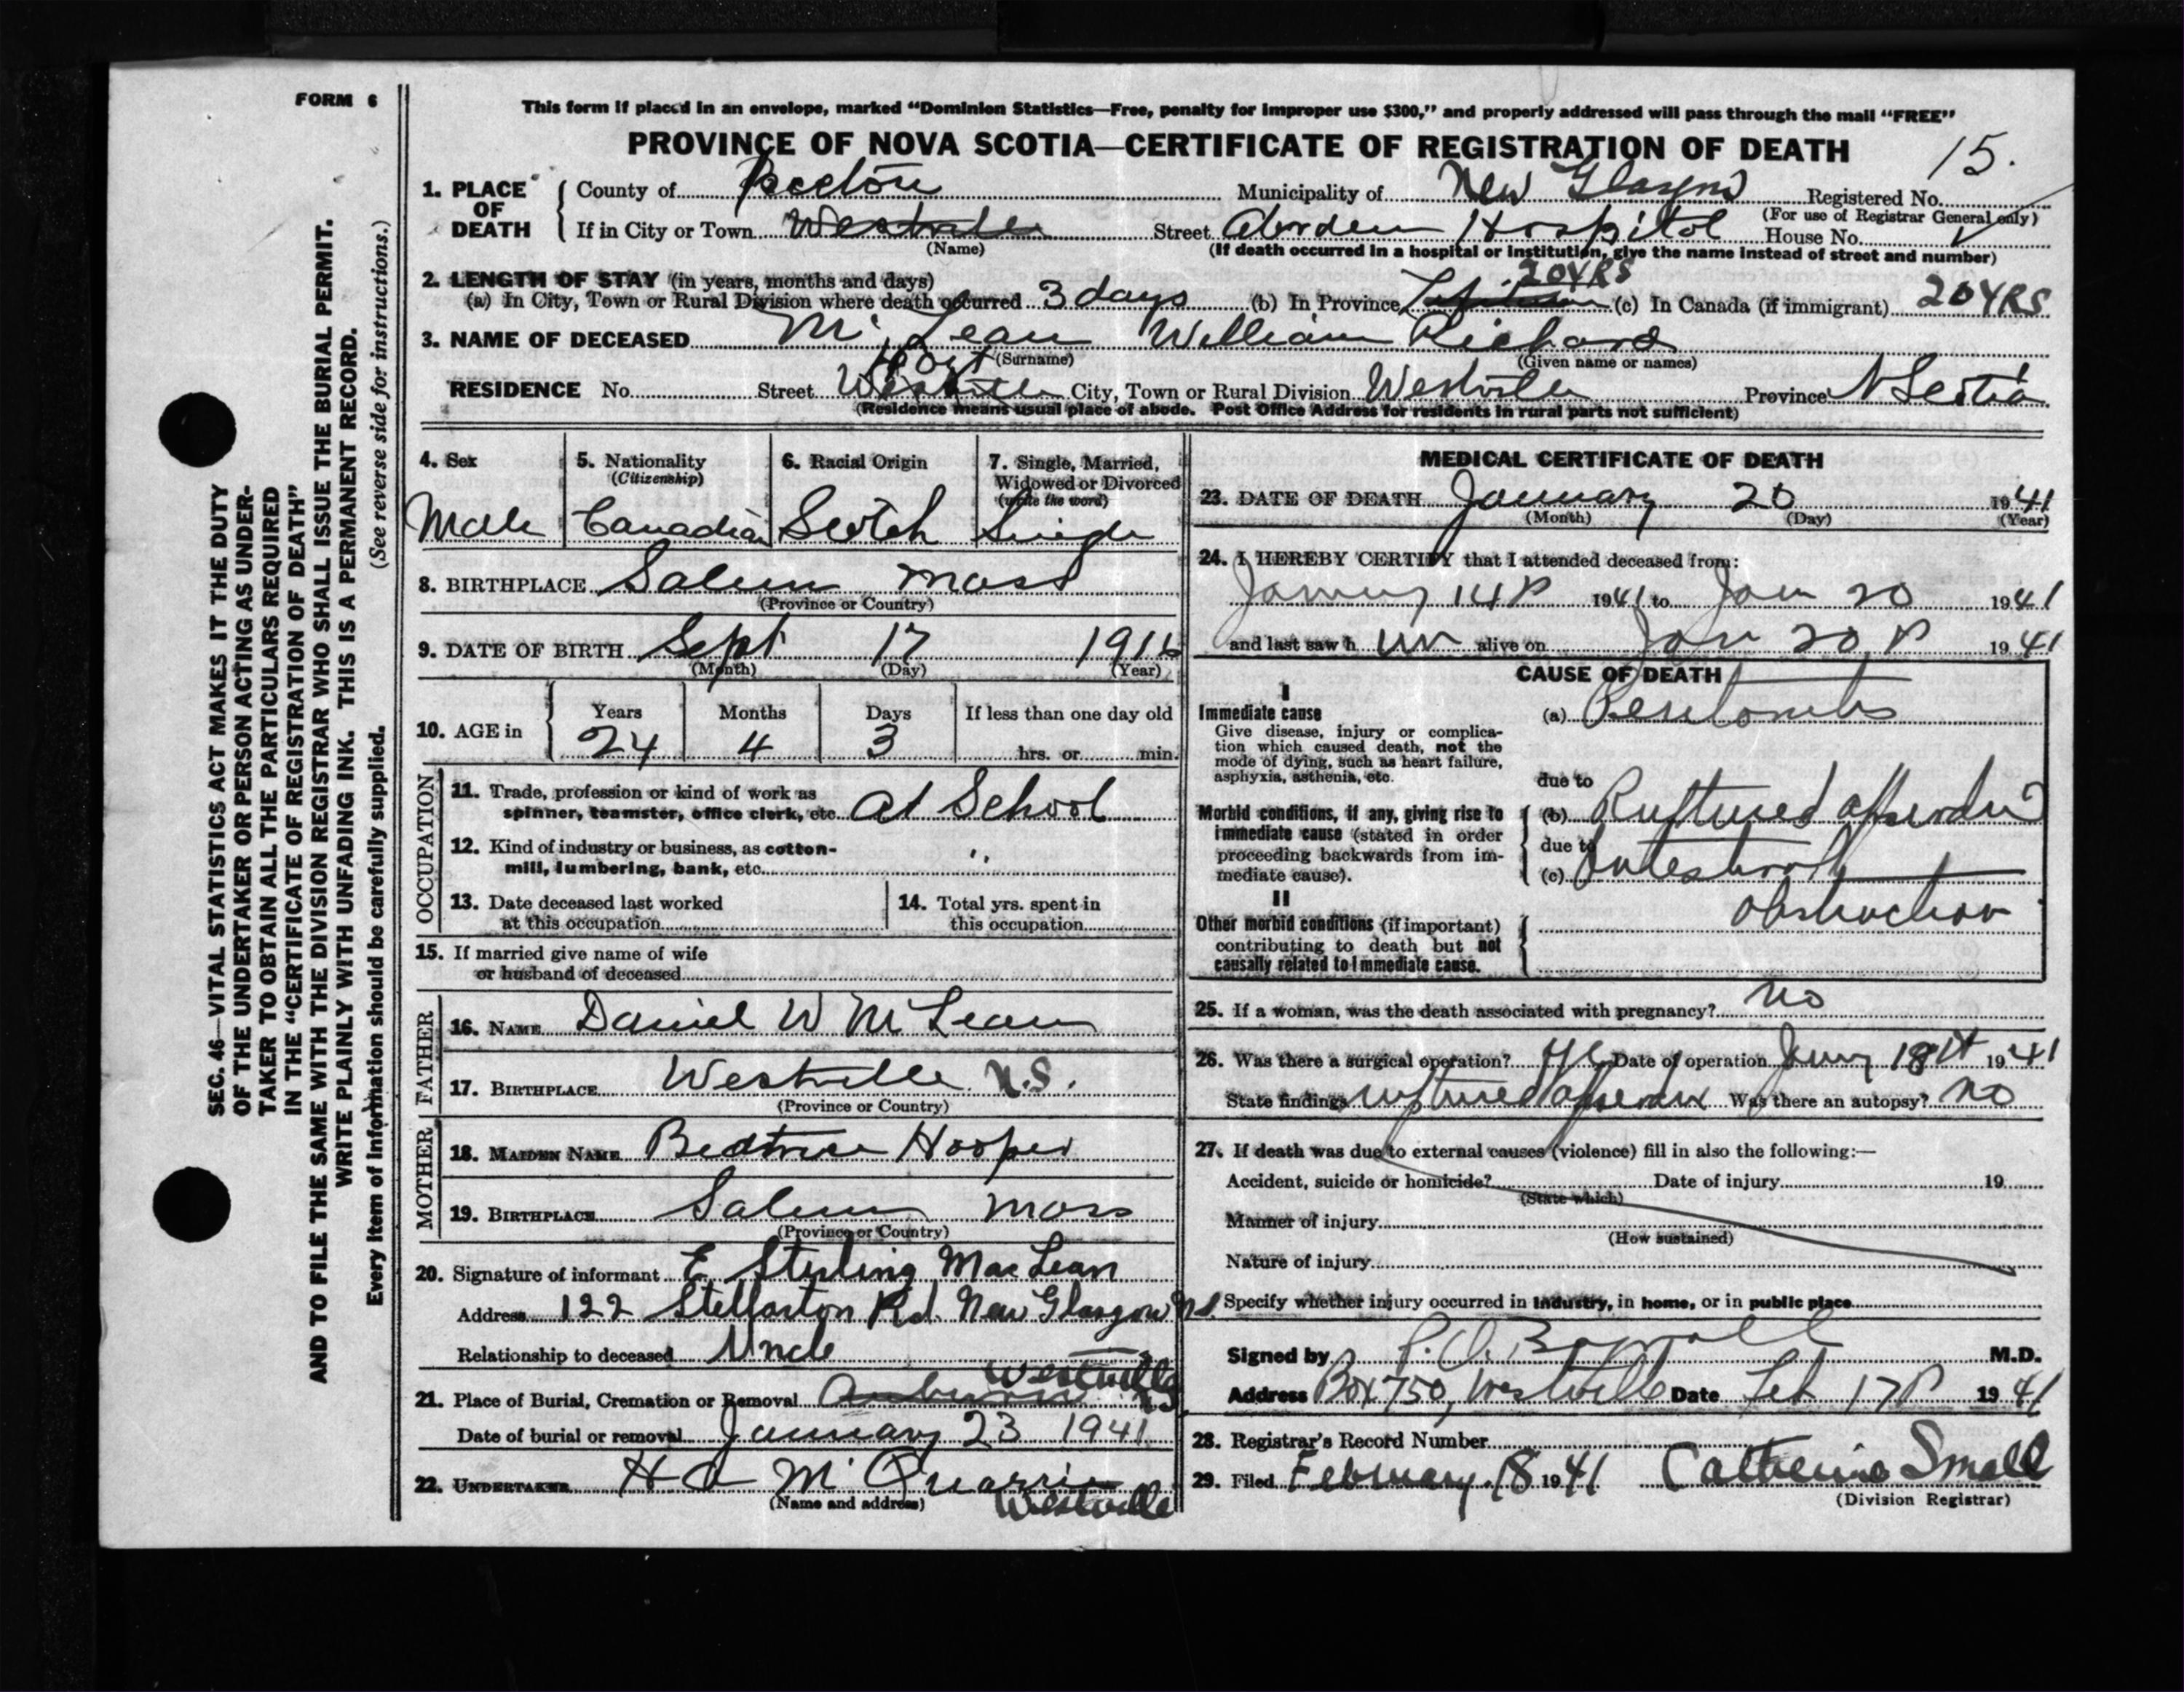 FORM 6
This form if placed in an envelope, marked “Dominion Statistics—Free, penalty for improper use $300,” and properly addressed will pass through the mail “FREE”
PROVINCE OF NOVA SCOTIA—CERTIFICATE OF REGISTRATION OF DEATH
15.
1. PLACE OF DEATH
County of Pictou Municipality of New Glasgow Registered No.
(For use of Registrar General only)
If in City or Town Westville Street Aberdeen Hospital House No.
(Name) (If death occurred in a hospital or institution, give the name instead of street and number)
2. LENGTH OF STAY (in years, months and days)
20 YRS
(a) In City, Town or Rural Division where death occurred 3 days (b) In Province (c) In Canada (if immigrant) 20 YRS
3. NAME OF DECEASED Mc Lean William Richard
(Surname) (Given name or names)
RESIDENCE No. Street City, Town or Rural Division Westville Province N Scotia
(Residence means usual place of abode. Post Office Address for residents in rural parts not sufficient)
4. Sex 5. Nationality 6. Racial Origin 7. Single, Married,
(Citizenship) Widowed or Divorced
(write the word)
Male Canadian Scotch Single
8. BIRTHPLACE Salem Mass
(Province or Country)
9. DATE OF BIRTH Sept 17 1916
(Month) (Day) (Year)
10. AGE in
Years Months Days If less than one day old
24 4 3 hrs. or min.
OCCUPATION
11. Trade, profession or kind of work as
spinner, teamster, office clerk, etc. At School
12. Kind of industry or business, as cotton-
mill, lumbering, bank, etc. "
13. Date deceased last worked
at this occupation
14. Total yrs. spent in
this occupation
15. If married give name of wife
or husband of deceased
FATHER
16. NAME Daniel W McLean
17. BIRTHPLACE Westville N.S.
(Province or Country)
MOTHER
18. MAIDEN NAME Beatrice Hooper
19. BIRTHPLACE Salem Mass
(Province or Country)
20. Signature of informant E. Sterling MacLean
Address 122 Stellarton Rd. New Glasgow N.S.
Relationship to deceased Uncle
Westville
21. Place of Burial, Cremation or Removal NS
Date of burial or removal January 23 1941
22. UNDERTAKER H A McQuarrie
(Name and address) Westville
MEDICAL CERTIFICATE OF DEATH
23. DATE OF DEATH January 20 1941
(Month) (Day) (Year)
24. I HEREBY CERTIFY that I attended deceased from:
January 14 1941 to Jan 20 1941
and last saw h im alive on Jan 20 1941
CAUSE OF DEATH
I
Immediate cause
Give disease, injury or complica-
tion which caused death, not the
mode of dying, such as heart failure,
asphyxia, asthenia, etc.
(a) Peritonitis
due to
Morbid conditions, if any, giving rise to
immediate cause (stated in order
proceeding backwards from im-
mediate cause).
(b) Ruptured appendix
due to
(c) Intestinal
obstruction
II
Other morbid conditions (if important)
contributing to death but not
causally related to immediate cause.
25. If a woman, was the death associated with pregnancy? No
26. Was there a surgical operation? Yes Date of operation 18 1941
State findings ruptured appendix Was there an autopsy? No
27. If death was due to external causes (violence) fill in also the following:—
Accident, suicide or homicide? Date of injury 19
(State which)
Manner of injury
(How sustained)
Nature of injury
Specify whether injury occurred in industry, in home, or in public place
Signed by M.D.
Address Box 750, Westville Date Feb 17 1941
28. Registrar's Record Number
29. Filed February 18 1941 Catherine Small
(Division Registrar)
SEC. 46—VITAL STATISTICS ACT MAKES IT THE DUTY
OF THE UNDERTAKER OR PERSON ACTING AS UNDER-
TAKER TO OBTAIN ALL THE PARTICULARS REQUIRED
IN THE “CERTIFICATE OF REGISTRATION OF DEATH”
AND TO FILE THE SAME WITH THE DIVISION REGISTRAR WHO SHALL ISSUE THE BURIAL PERMIT.
WRITE PLAINLY WITH UNFADING INK. THIS IS A PERMANENT RECORD.
Every item of information should be carefully supplied. (See reverse side for instructions.)